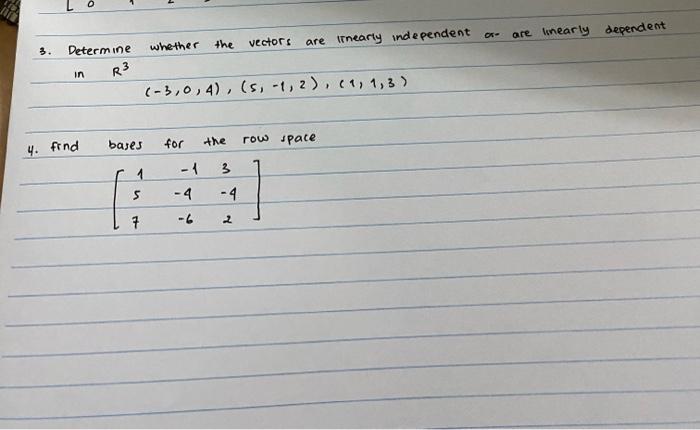 3. Determine whether the vectors are linearly independent or are linearly dependent
in R³
(-3,0,4), (5,-1,2), (1,1,3)
4. find bases for the row space
1 -1 3
5 -4 -4
7 -6 2